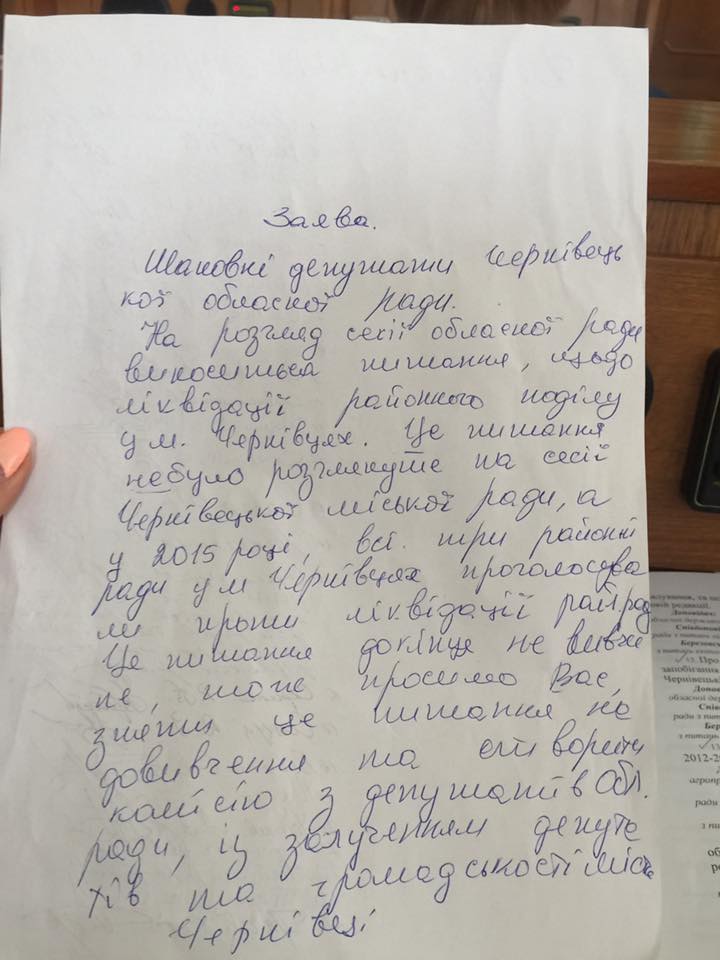 Заява.
Шановні депутати Чернівець
кої обласної ради.
На розгляд сесії обласної ради
виноситься питання, щодо
ліквідації районного поділу
у м. Чернівцях. Це питання
небуло розглянуте на сесії
Чернівецької міської ради, а
у 2015 році, всі три районні
ради у м Чернівцях проголосува
ли проти ліквідації райрад
Це питання докінце не вивче
не, тому просимо Вас,
зняти це питання на
довивчення та створити
комісію з депутатів Обл.
ради, із залученням депута
тів та громадськості міста
Чернівці
запобігання
Чернівецьк
обласної дер
ради з питань
2012-20
агропр
ради з
з пит